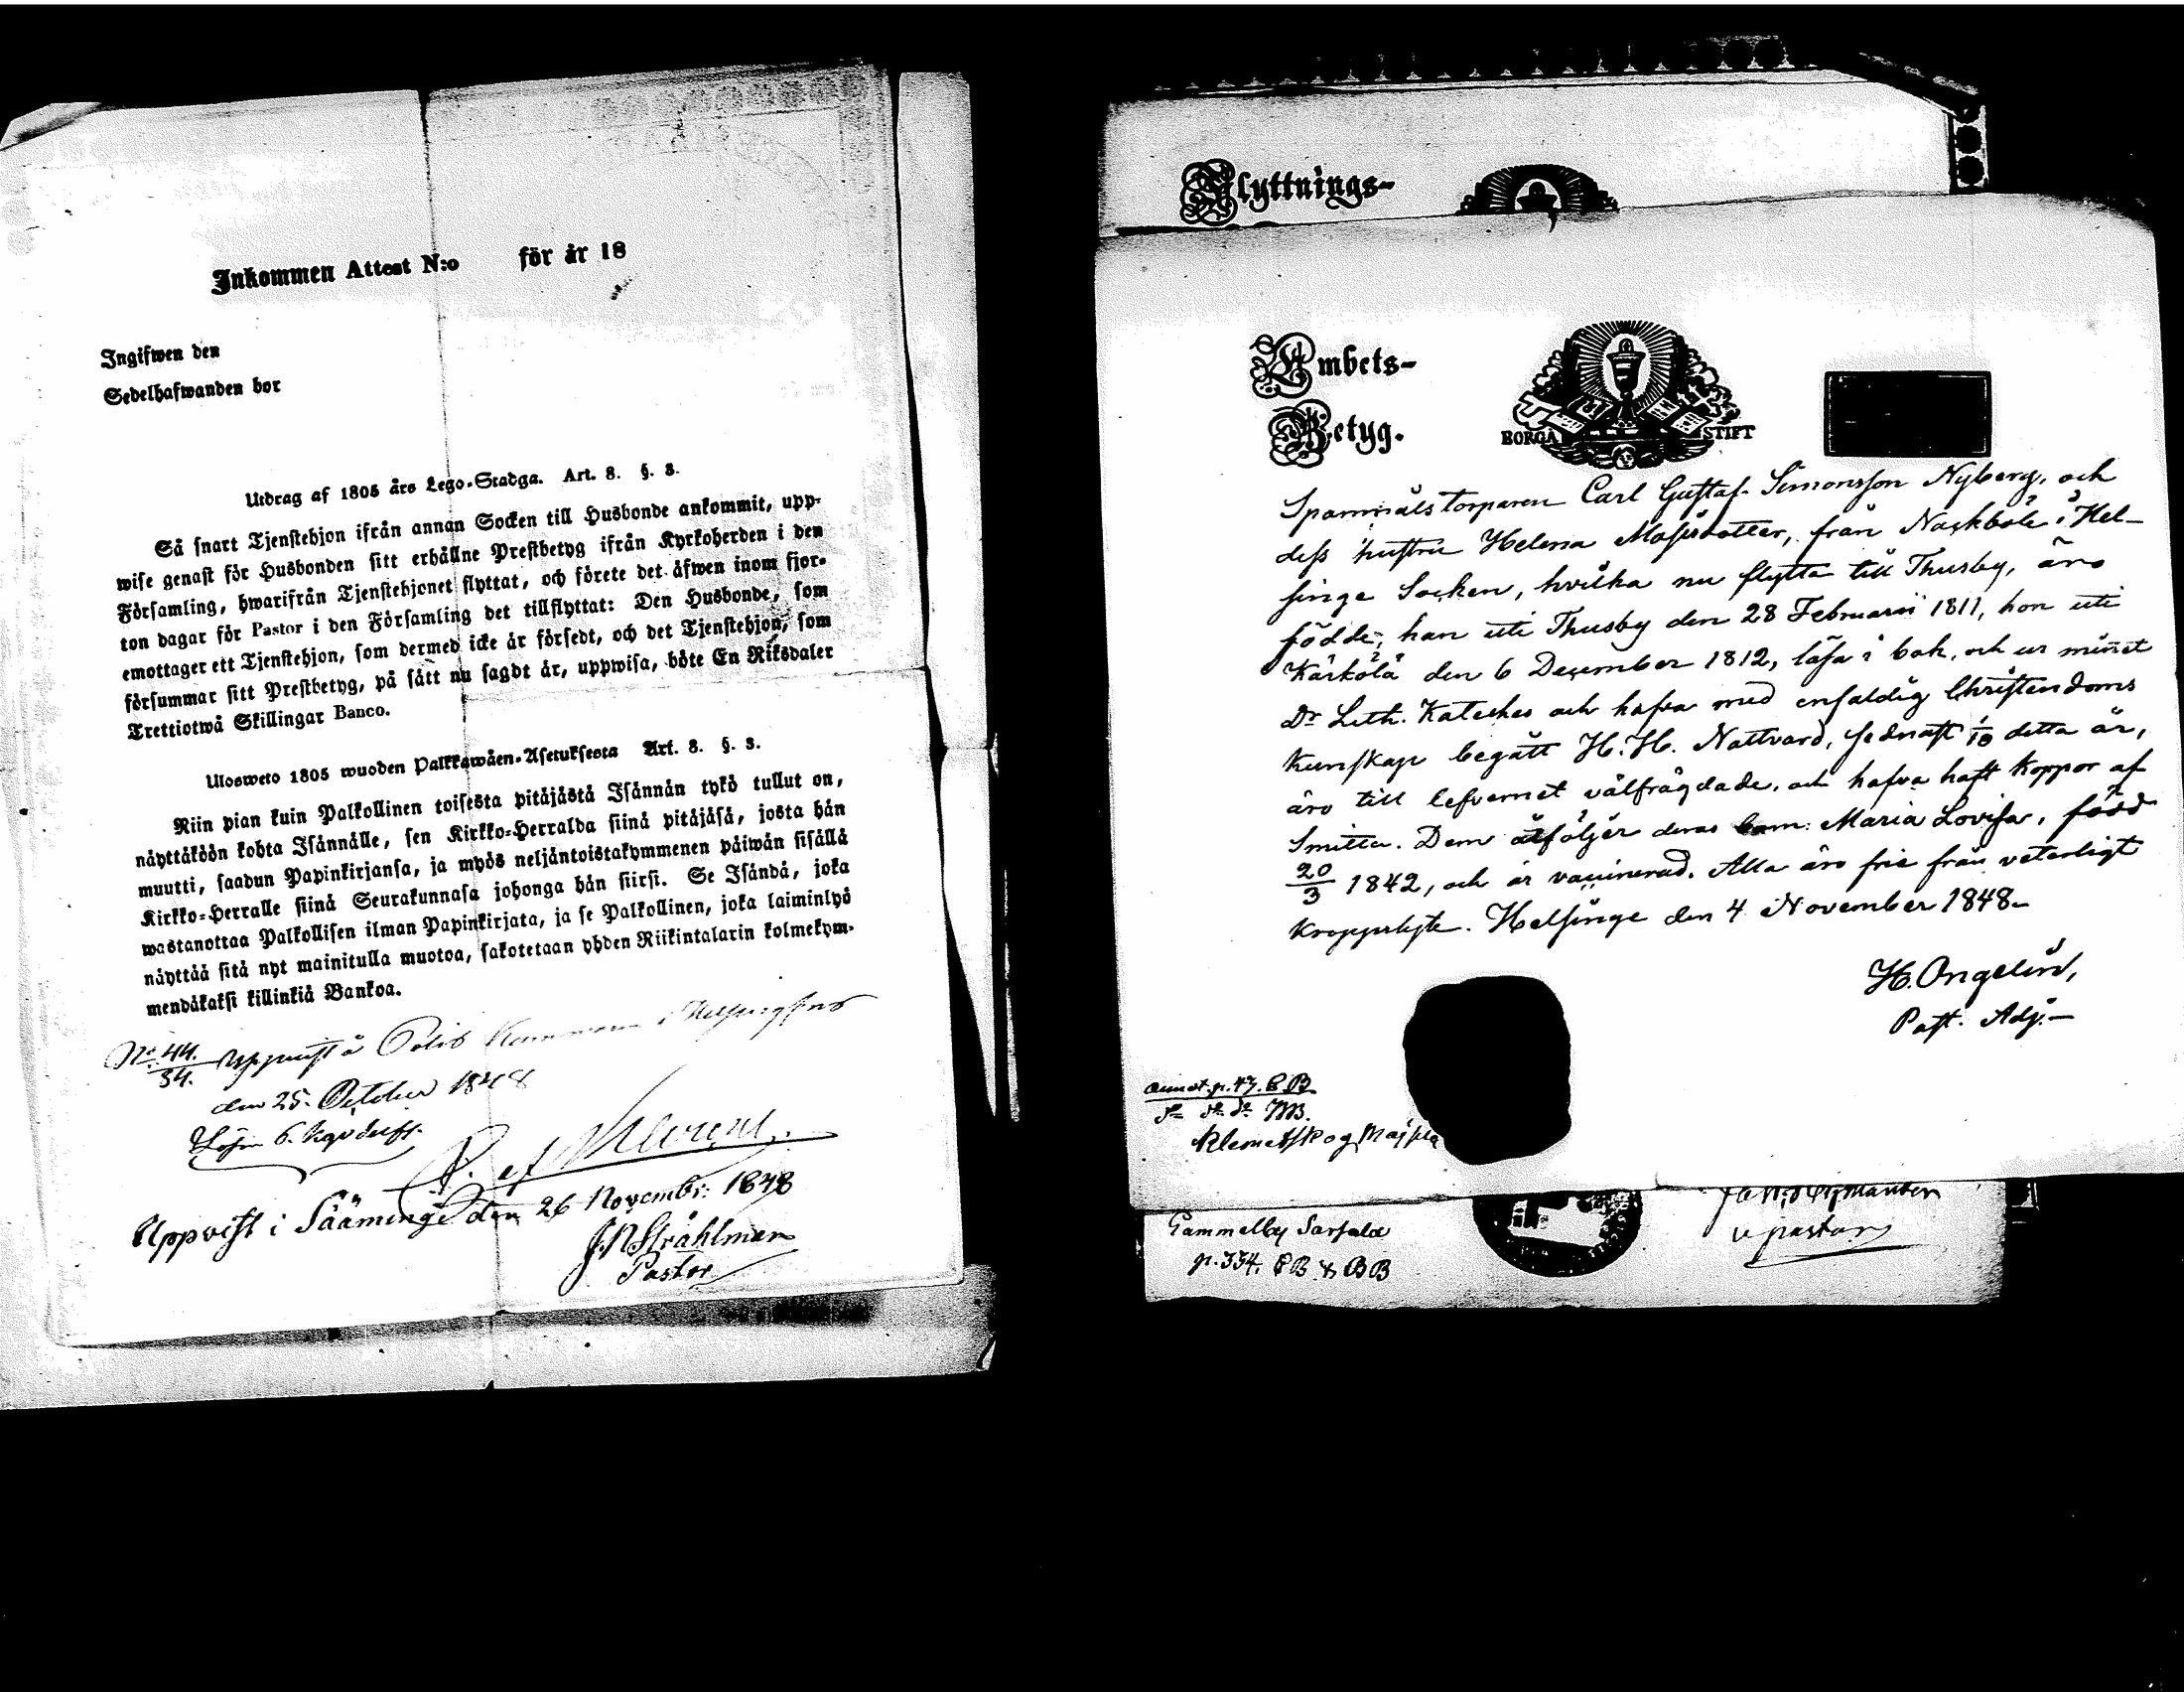 Inkommen Attest N:o för år 18
Ingifwen den
Sedelhafwanden bor
Utdrag af 1805 års Lego-Stadga. Art. 8. §. 3.
Så snart Tjenstehjon ifrån annan Socken till Husbonde ankommit, upp-
wise genast för Husbonden sitt erhållne Prestbetyg ifrån Kyrkoherden i den
Församling, hwarifrån Tjenstehjonet flyttat, och förete det äfwen inom fjor-
ton dagar för Pastor i den Församling det tillflyttat: Den Husbonde, som
emottager ett Tjenstehjon, som dermed icke är försedt, och det Tjenstehjon, som
försummar sitt Prestbetyg, på sätt nu sagdt är, uppwisa, böte En Riksdaler
Trettiotwå Skillingar Banco.
Ulosweto 1805 wuoden Palkkawäen-Asetuksesta Art. 8. §. 3.
Niin pian kuin Palkollinen toisesta pitäjästä Isännän tykö tullut on,
näyttäköön kohta Isännälle, sen Kirkko-Herralda siinä pitäjäsä, josta hän
muutti, saadun Papinkirjansa, ja myös neljäntoistakymmenen päiwän sisällä
Kirkko-Herralle siinä Seurakunnasa johonga hän siirsi. Se Isändä, joka
wastanottaa Palkollisen ilman Papinkirjata, ja se Palkollinen, joka laiminlyö
näyttää sitä nyt mainitulla muotoa, sakotetaan yhden Riikintalarin kolmekym-
mendäkaksi killinkiä Bankoa.
No 44. Uppvist å Polis Kammaren i Helsingfors
34.
den 25. October 1848
Uppvist i Sääminge den 26 Novembr: 1848
J.N Stråhlman
Pastor
Flyttnings-
Embets-
Betyg.
BORGÅ STIFT
Spanmålstorparen Carl Gustaf Simonsson Nyberg, och
dess hustru Helena Mosisdotter, från Nackböle i Hel-
singe Socken, hvilka nu flytta till Thusby, äro
födde; han uti Thusby den 28 Februarii 1811, hon uti
Kärkölä den 6 December 1812, läsa i bok, och ur minnet
Dr Luth. Kateches och hafva med enfaldig Christendoms
kunskap begått H. H. Nattvard, sednast 1/10 detta år,
äro till lefvernet välfrägdade, och hafva haft koppor af
Smitta. Dem åtföljer deras barn: Maria Lovisa, född
20/3 1842, och är vaccinerad. Alla äro frie från veterligt
kroppslyte. Helsinge den 4 November 1848.
H. Ongelin,
Past. Adj.
annot. p. 47. CB
do do do MB.
Klemetskog
Gammelby
p. 334. CB & BB
v pastor